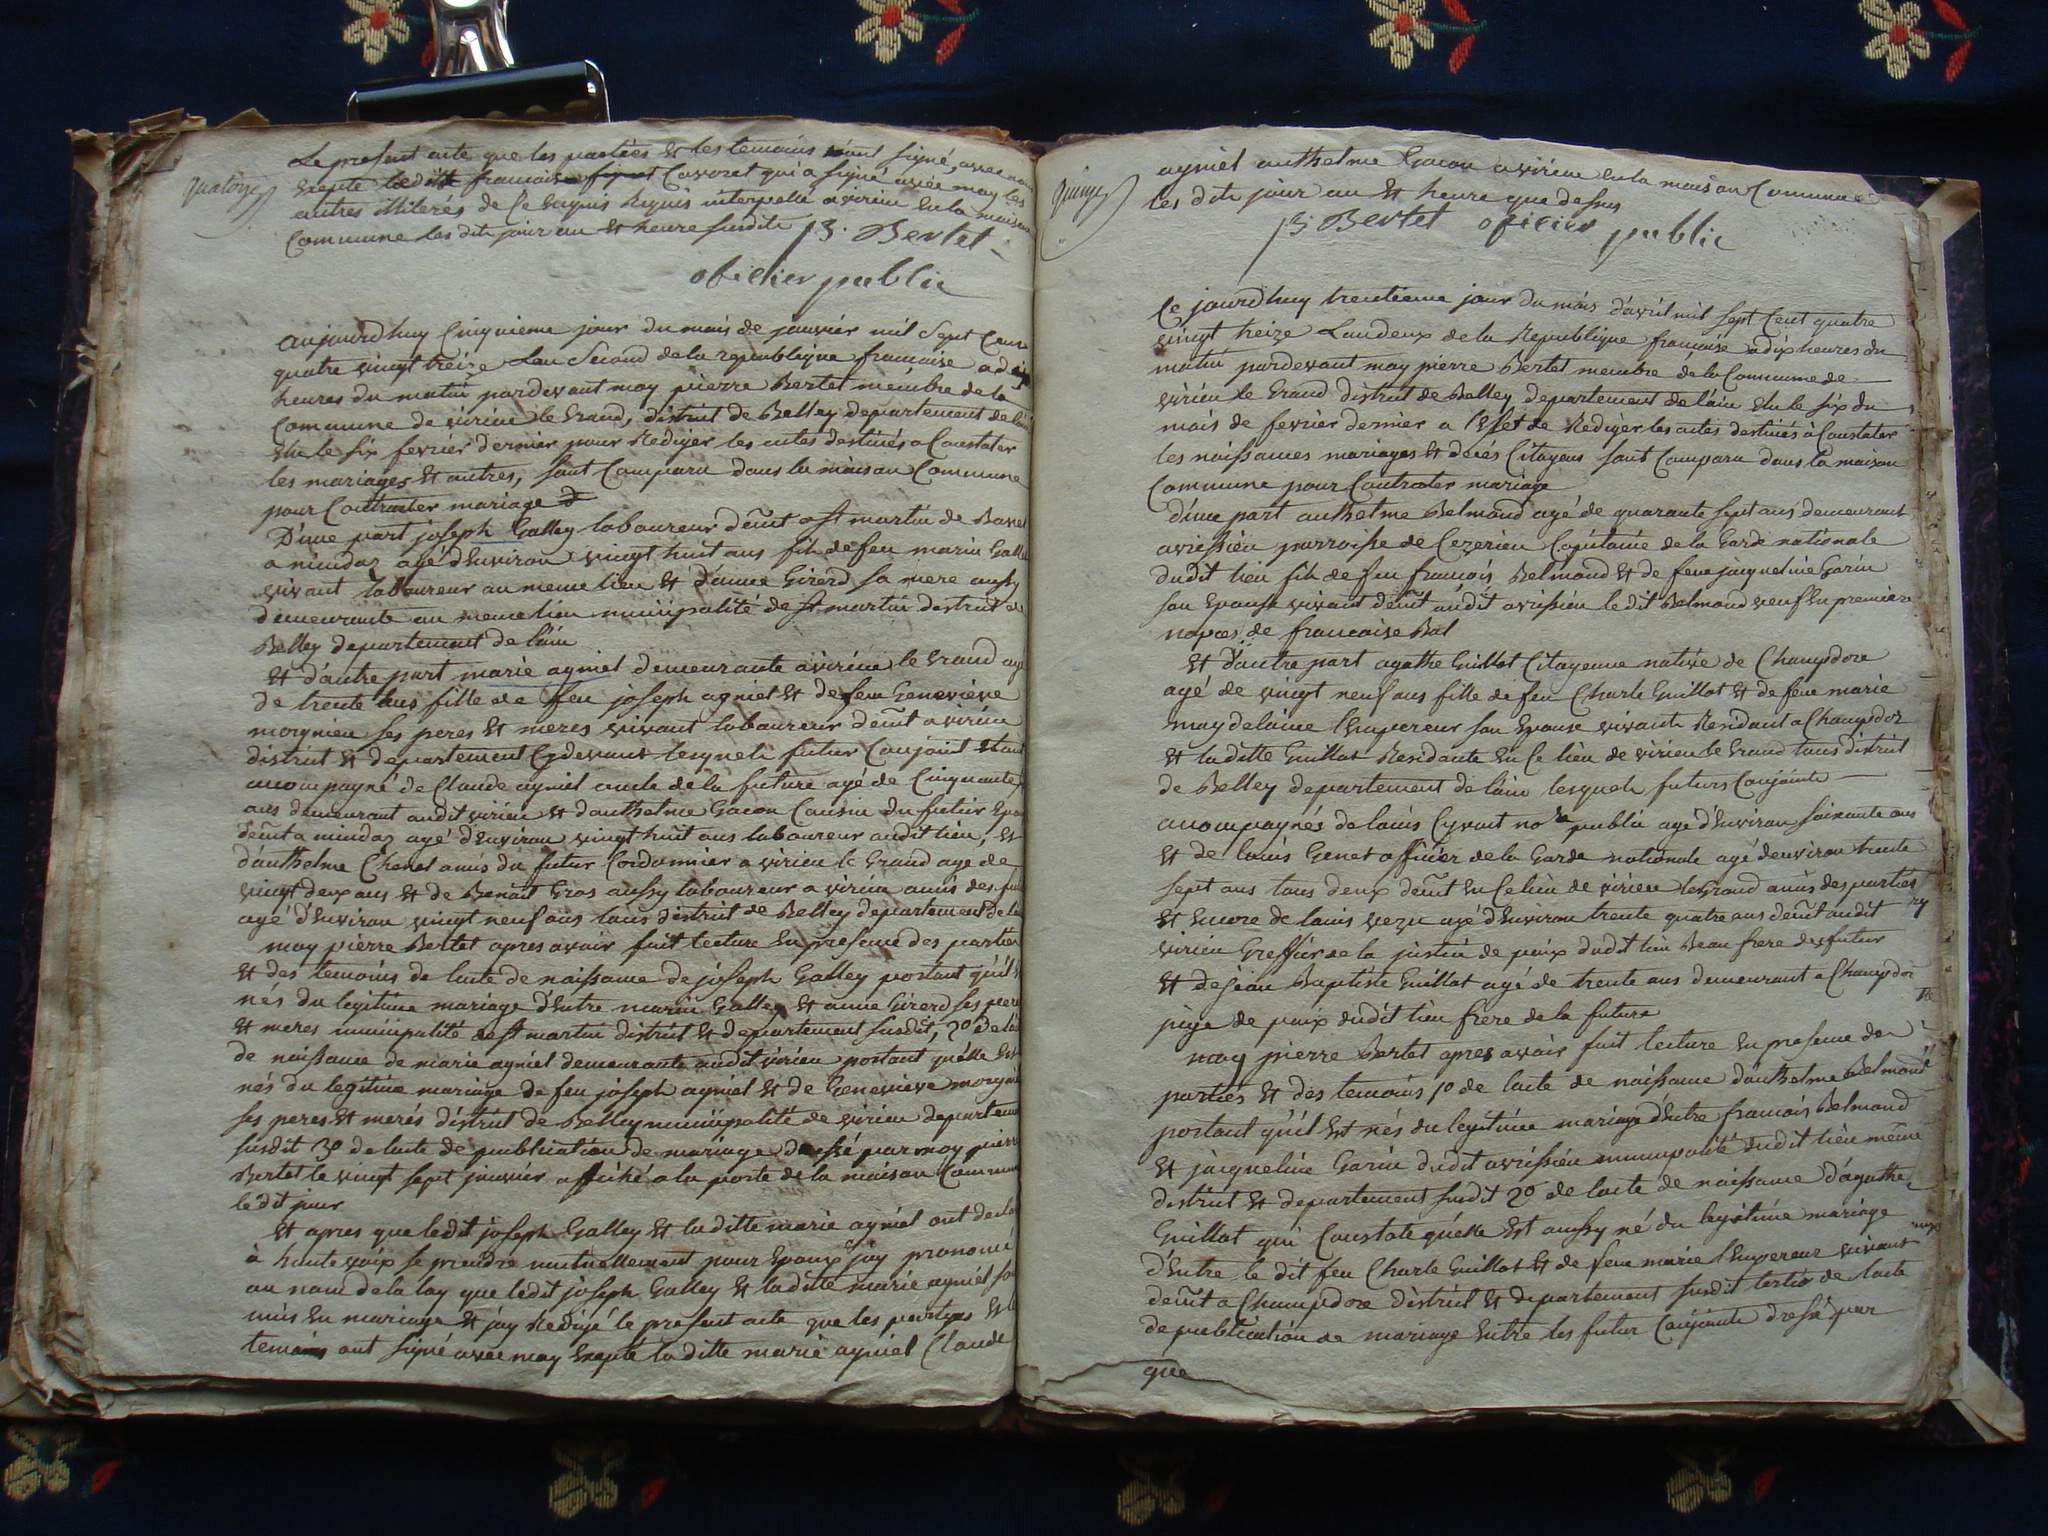 quatorze
Le present acte que les parties et les temoins n'ont signé, avec
Exepte ledit francois Cavoret qui a signé avec moy les
autres illiterés de ce enquis Requis interpellé a virieu En la maison
Commune les dits jour an et heure susdits P. Bertet
oficier public
aujourd'huy Cinquieme jour du mois de janvier mil Sept Cent
quatre vingt treize Lan Second de la republique francaise a dix
heures du matin pardevant moy pierre Bertet membre de la
Commune de virieu le Grand, district de Belley departement de l'ain
Elu le six fevrier dernier pour Rediger les actes destinés a Constater
les mariages et autres, sont Comparu dans la maison Commune
pour Contracter mariage
D'une part joseph Galley laboureur deût a st martin de Bavel
a mindaz agé d'Environ vingt huit ans fils de feu marin Galley
vivant laboureur au meme lieu et d'anne Girerd sa mere aussy
demeurante au meme lieu municipalité de st martin district de
Belley departement de l'ain
et d'autre part marie ayniel demeurante a virieu le Grand agé
de trente ans fille de feu joseph ayniel et de feu Genevieve
morynieu ses peres et meres vivant laboureur deût a virieu
district et departement Cydevant lesquels futur Conjoint Etant
accompagné de Claude ayniel oncle de la future agé de Cinquante
ans demeurant audit virieu et d'anthelme Gacon Cousin du futur Epoux
deût a mindaz agé d'Environ vingt huit ans laboureur audit lieu, et
d'anthelme Chenet amis du futur Cordonnier a virieu le Grand age de
vingt deux ans et de Benoit Gros aussy laboureur a virieu amis des
agé d'Environ vingt neuf ans tous district de Belley departement de l'ain
moy pierre Bertet apres avoir fait lecture En presence des parties
et des temoins de lacte de naissance de joseph Galley portant qu'il est
nés du legitime mariage d'Entre marin Galley et anne Girerd ses pere
et meres municipalité de st martin district et departement susdit, 2º de lacte
de naissance de marie ayniel demeurante audit virieu portant qu'elle est
nés du legitime mariage de feu joseph ayniel et de Genevieve morynieu
ses peres et merés district de Belley municipalité de virieu departement
susdit 3º de lacte de publication de mariage dressé par moy pierre
Bertet le vingt sept janvier affiché a la porte de la maison Commune
ledit jour
et apres que ledit joseph Galley et laditte marie ayniel ont declaré
à haute voix se prendre mutuellement pour Epoux jay prononcé
au nom de la loy que ledit joseph Galley et laditte marie ayniel sont
unis En mariage et jay Redigé le present acte que les parties et les
temoins ont signé avec moy Exepté laditte marie ayniel Claude
quinze
ayniel anthelme Gacon a virieu En la maison Commune
les dits jour an et heure que dessus
P. Bertet oficier public
Ce jourd'huy trentieme jour du mois d'avril mil sept Cent quatre
vingt treize Lan deux de la Republique francaise a dix heures du
matin pardevant moy pierre Bertet membre de la Commune de
virieu le Grand district de Belley departement de l'ain Elu le six du
mois de fevrier dernier a l'effet de Rediger les actes destinés à Constater
les naissances mariages et décés Citoyens sont Comparu dans la maison
Commune pour Contracter mariage
d'une part anthelme Belmond agé de quarante sept ans demeurant
a vrissieu parroisse de Cezerieu Capitaine de la Garde nationale
dudit lieu fils de feu francois Belmond et de feue jacqueline Garin
son Epouse vivant deût audit avrissieu ledit Belmond veuf En premiere
nopces de francaise Bal
et d'autre part agathe Guillot Citoyenne native de Champdore
agé de vingt neuf ans fille de feu Charle Guillot et de feue marie
magdelaine l'Empereur son Epouse vivants Residant a Champdor
et laditte Guillot Residante En Ce lieu de virieu le Grand tous district
de Belley departement de l'ain lesquels futurs Conjoints
accompagnés de louis Cyvoct nore public agé d'Environ soixante ans
et de louis Genet officier de la Garde nationale agé denviron trente
sept ans tous deux deût En Ce lieu de virieu le grand amis des parties
et Encore de louis vezu agé d'Environ trente quatre ans deût audit
virieu Greffier de la justice de paix dudit lieu Beau frere des futur
et de jean Baptiste Guillot agé de trente ans demeurant a Champdor
juge de paix dudit lieu frere de la future
moy pierre Bertet apres avoir fait lecture En presence des
partiés et des temoins 1º de lacte de naissance d'anthelme Belmond
portant qu'il Est nés du legitime mariage d'Entre francois Belmond
et jacqueline Garin dudit avrissieu municipalité dudit lieu même
district et departement susdit 2º de lacte de naissance d'agathe
Guillot qui Constate qu'elle Est aussy né du legitime mariage
d'Entre le dit feu Charle Guillot et de feue marie l'Empereur vivant
deût a Champdore district et departement susdit tertio de lacte
de publication de mariage Entre les futur Conjoints dressé par
que